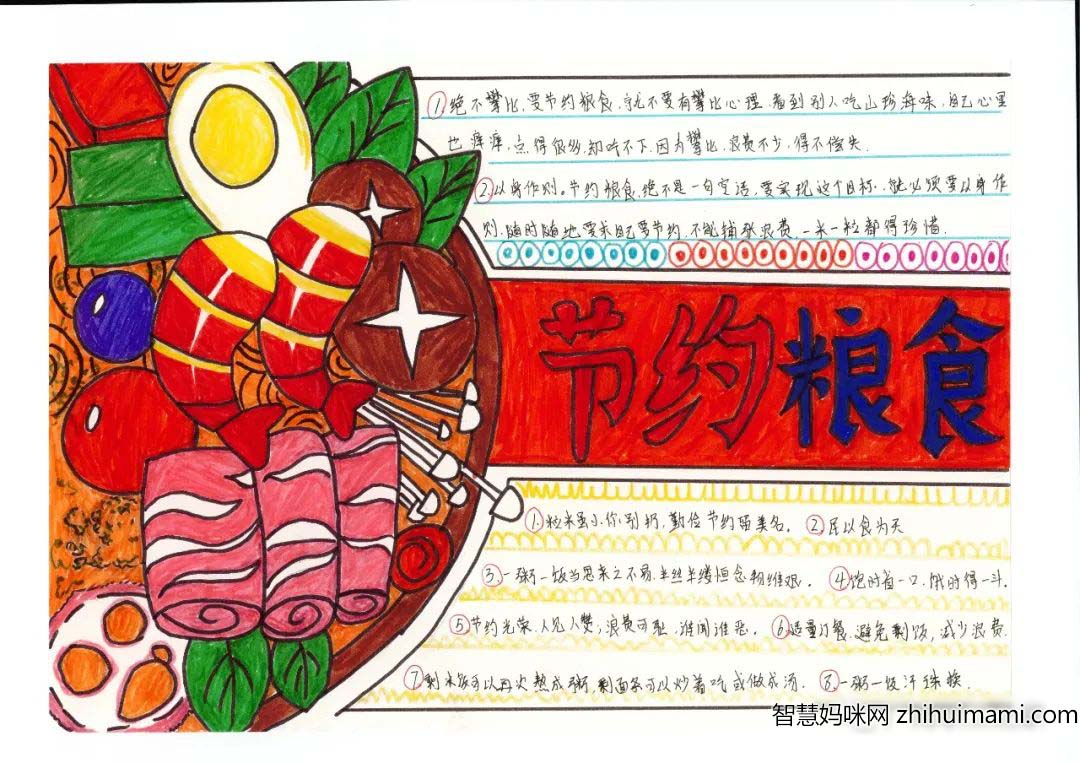 ①绝不攀比。要节约粮食，就不要有攀比心理，看到别人吃山珍海味，自己心里
也痒痒，点得很多，却吃不下，因为攀比，浪费不少，得不偿失。
②以身作则。节约粮食，绝不是一句空话，要实现这个目标，就必须要以身作
则，随时随地要求自己要节约，不能铺张浪费，一米一粒都得珍惜。
节约粮食
①粒米虽小你别扔，勤俭节约留美名。 ②民以食为天
③一粥一饭当思来之不易，半丝半缕恒念物维艰。 ④饱时省一口，饿时得一斗。
⑤节约光荣，人见人赞，浪费可耻，谁闻谁恶。 ⑥适量订餐，避免剩饭，减少浪费.
⑦剩米饭可以再火熬成粥，剩面条可以炒着吃或做成汤。 ⑧一粥一饭汗珠换。
智慧妈咪网 zhihuimami.com